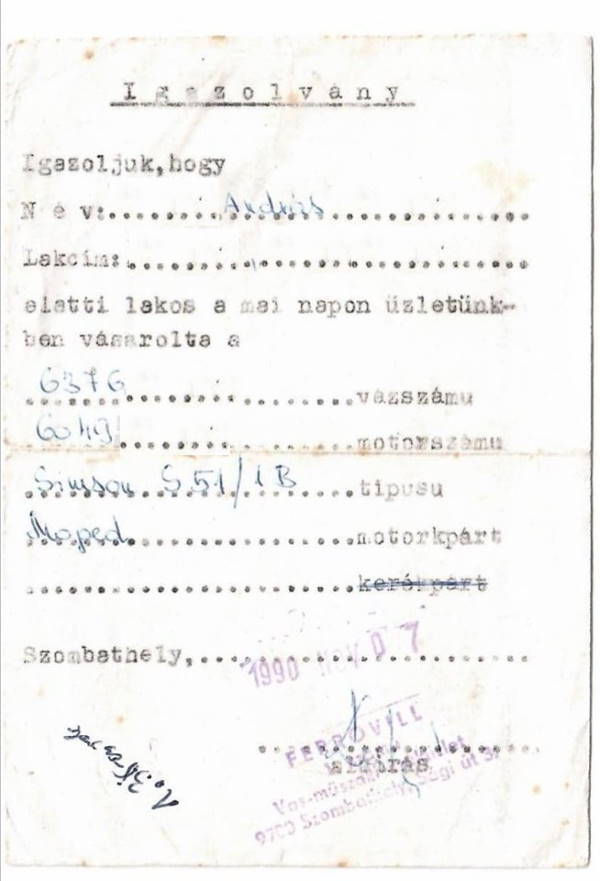 Igazolvány
Igazoljuk,hogy
N é v:........András..................
Lakcím:...............................
alatti lakos a mai napon üzletünk-
ben vásárolta a
6376......................vázszámu
6049......................motorszámu
Simson S51/1B.............tipusu
Moped.....................motorkpárt
..........................kerékpárt
Szombathely,..........................
1990 NOV 0 7
..........................
aláírás
FERROVILL
Vas-műszaki
9700 Szombathely, ségi út